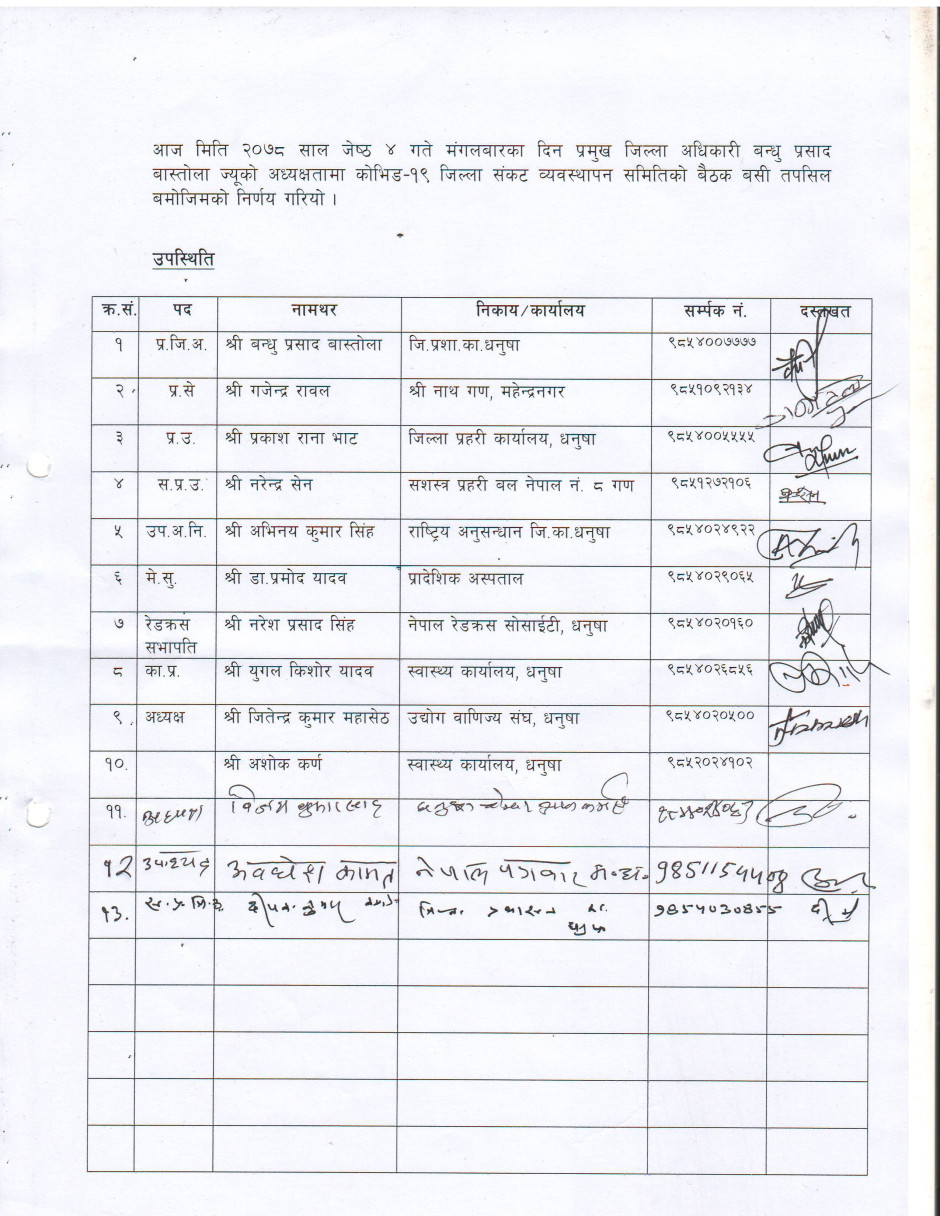 आज मिति २०७८ साल जेष्ठ ४ गते मंगलबारका दिन प्रमुख जिल्ला अधिकारी बन्धु प्रसाद
बास्तोला ज्यूको अध्यक्षतामा कोभिड-१९ जिल्ला संकट व्यवस्थापन समितिको बैठक बसी तपसिल
बमोजिमको निर्णय गरियो ।
उपस्थिति
क्र.सं. पद नामथर निकाय/कार्यालय सर्म्पक नं. दस्तखत
१ प्र.जि.अ. श्री बन्धु प्रसाद बास्तोला जि.प्रशा.का.धनुषा ९८५४००७७७७
२ प्र.से श्री गजेन्द्र रावल श्री नाथ गण, महेन्द्रनगर ९८५१०९२१३४
३ प्र.उ. श्री प्रकाश राना भाट जिल्ला प्रहरी कार्यालय, धनुषा ९८५४००५५५५
४ स.प्र.उ. श्री नरेन्द्र सेन सशस्त्र प्रहरी वल नेपाल नं. ८ गण ९८५१२७२१०६
५ उप.अ.नि. श्री अभिनय कुमार सिंह राष्ट्रिय अनुसन्धान जि.का.धनुषा ९८५४०२४९२२
६ मे.सु. श्री डा.प्रमोद यादव प्रादेशिक अस्पताल ९८५४०२९०६५
७ रेडक्रस श्री नरेश प्रसाद सिंह नेपाल रेडक्रस सोसाईटी, धनुषा ९८५४०२०१६०
सभापति
८ का.प्र. श्री युगल किशोर यादव स्वास्थ्य कार्यालय, धनुषा ९८५४०२६८५६
९ अध्यक्ष श्री जितेन्द्र कुमार महासेठ उद्योग वाणिज्य संघ, धनुषा ९८५४०२०५००
१०. श्री अशोक कर्ण स्वास्थ्य कार्यालय, धनुषा ९८५२०२४१०२
११. अध्यक्ष
१२ उपाध्यक्ष अवधेश कामत नेपाल पत्रकार
१३. 9854030855